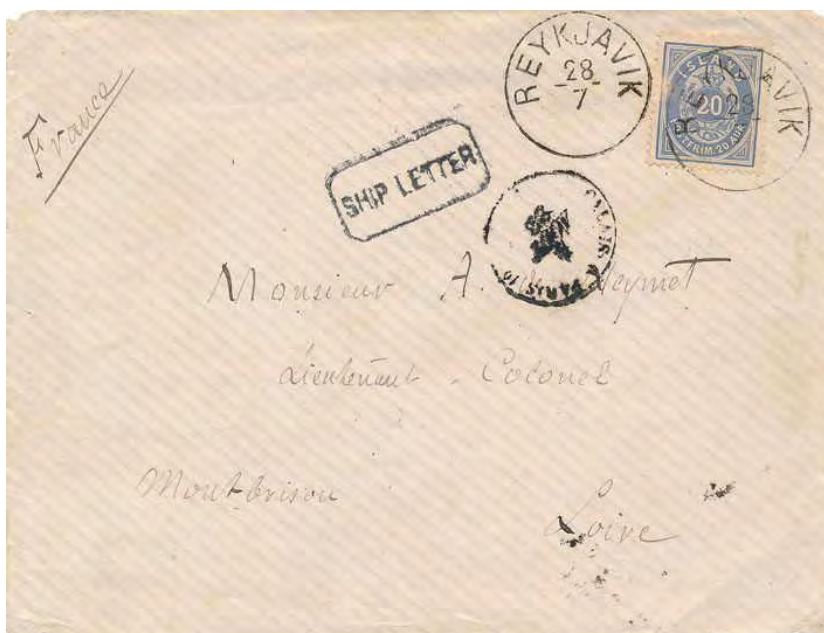 France
REYKJAVIK
28
7
ÍSLAND
20
FRÍM 20 AUR
REYKJAVIK
28
SHIP LETTER
CALAIS A PARIS
Monsieur A.
Lieutenant - Colonel
Montbrison
Loire